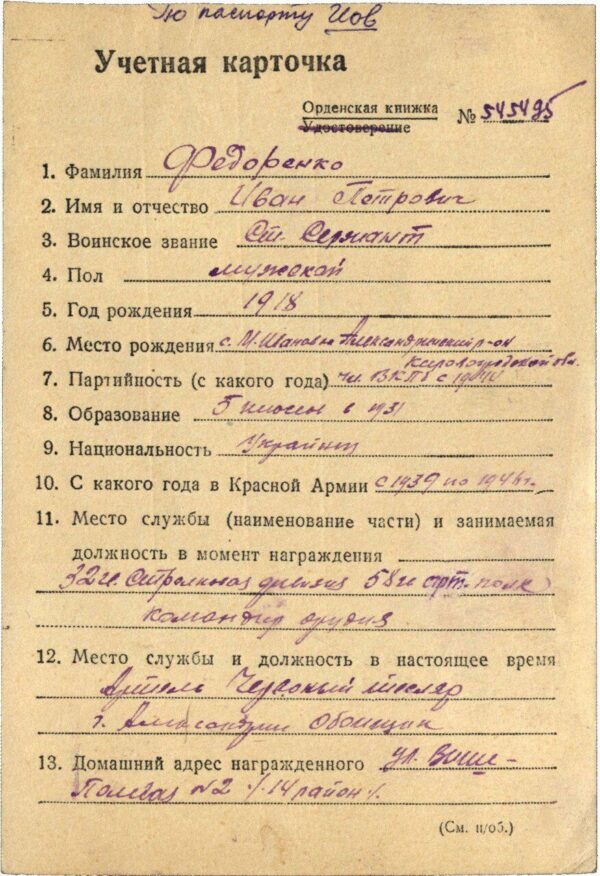 По паспорту Иов
Учетная карточка
Орденская книжка № 545495
Удостоверение
1. Фамилия Федоренко
2. Имя и отчество Иван Петрович
3. Воинское звание Ст. Сержант
4. Пол мужской
5. Год рождения 1918
6. Место рождения с. М. Ивановка Александрийский р-он
Кировоградской обл.
7. Партийность (с какого года) чл. ВКПб с 1944
8. Образование 5 классов в 1931
9. Национальность Украинец
10. С какого года в Красной Армии с 1939 по 1946 г.
11. Место службы (наименование части) и занимаемая
должность в момент награждения
32 гв. Стрелковая дивизия 58 гв арт. полк
командир орудия
12. Место службы и должность в настоящее время
Артель Червоный тесляр
г. Александрия Обойщик
13. Домашний адрес награжденного ул.
№ 2 14 район
(См. н/об.)